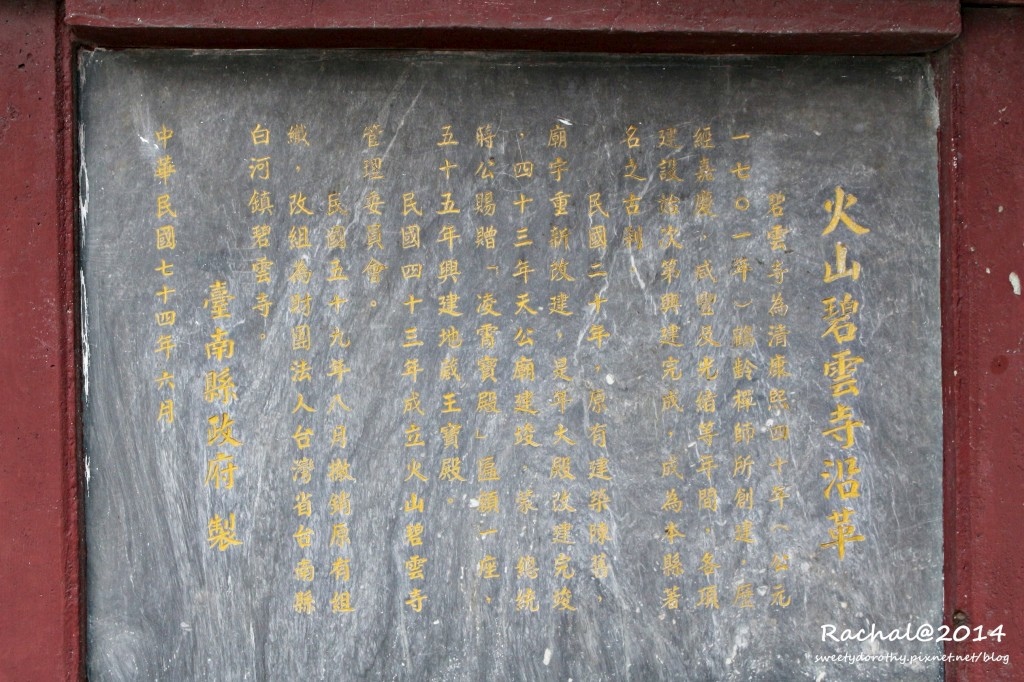 火山碧雲寺沿革
碧雲寺為清康熙四十年(公元
一七〇一年)鶴齡禪師所創建,歷
經嘉慶,咸豐及光緒等年間,各項
建設依次第興建完成,成為本縣著
名之古剎
民國二十年,原有建築陳舊,
廟宇重新改建,是年大殿改建完竣
,四十三年天公廟建竣,蒙 總統
蔣公賜贈「凌霄寶殿」匾額一座,
五十五年興建地藏王寶殿。
民國四十三年成立火山碧雲寺
管理委員會。
民國五十九年八月撤銷原有組
織,改組為財團法人台灣省台南縣
白河鎮碧雲寺。
臺南縣政府 製
中華民國七十四年六月
Rachal@2014
sweetydorothy.pixnet.net/blog